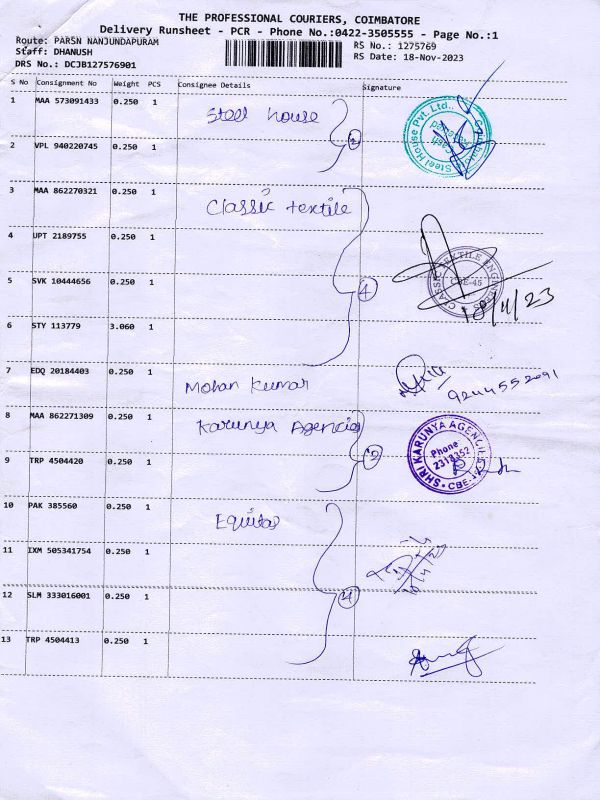 THE PROFESSIONAL COURIERS, COIMBATORE
Delivery Runsheet - PCR - Phone No.:0422-3505555 - Page No.:1
Route: PARSN NANJUNDAPURAM
RS No.: 1275769
Staff: DHANUSH
RS Date: 18-Nov-2023
DRS No.: DCJB127576901
S No Consignment No Weight PCS Consignee Details Signature
1 MAA 573091433 0.250 1 Steel house
2 VPL 940220745 0.250 1
2
Steel House Pvt. Ltd.,
3 MAA 862270321 0.250 1 Classic textile
4 UPT 2189755 0.250 1
5 SVK 10444656 0.250 1
4
CLASSIC TEXTILE ENGINEERS
CBE-45
18/11/23
6 STY 113779 3.060 1
7 EDQ 20184403 0.250 1 Mohan Kumar
9244552091
8 MAA 862271309 0.250 1 Karunya Agencies
9 TRP 4504420 0.250 1
2
SHRI KARUNYA AGENCIES
Phone
2318352
10 PAK 385560 0.250 1 Equitas
11 IXM 505341754 0.250 1
12 SLM 333016001 0.250 1
4
13 TRP 4504413 0.250 1